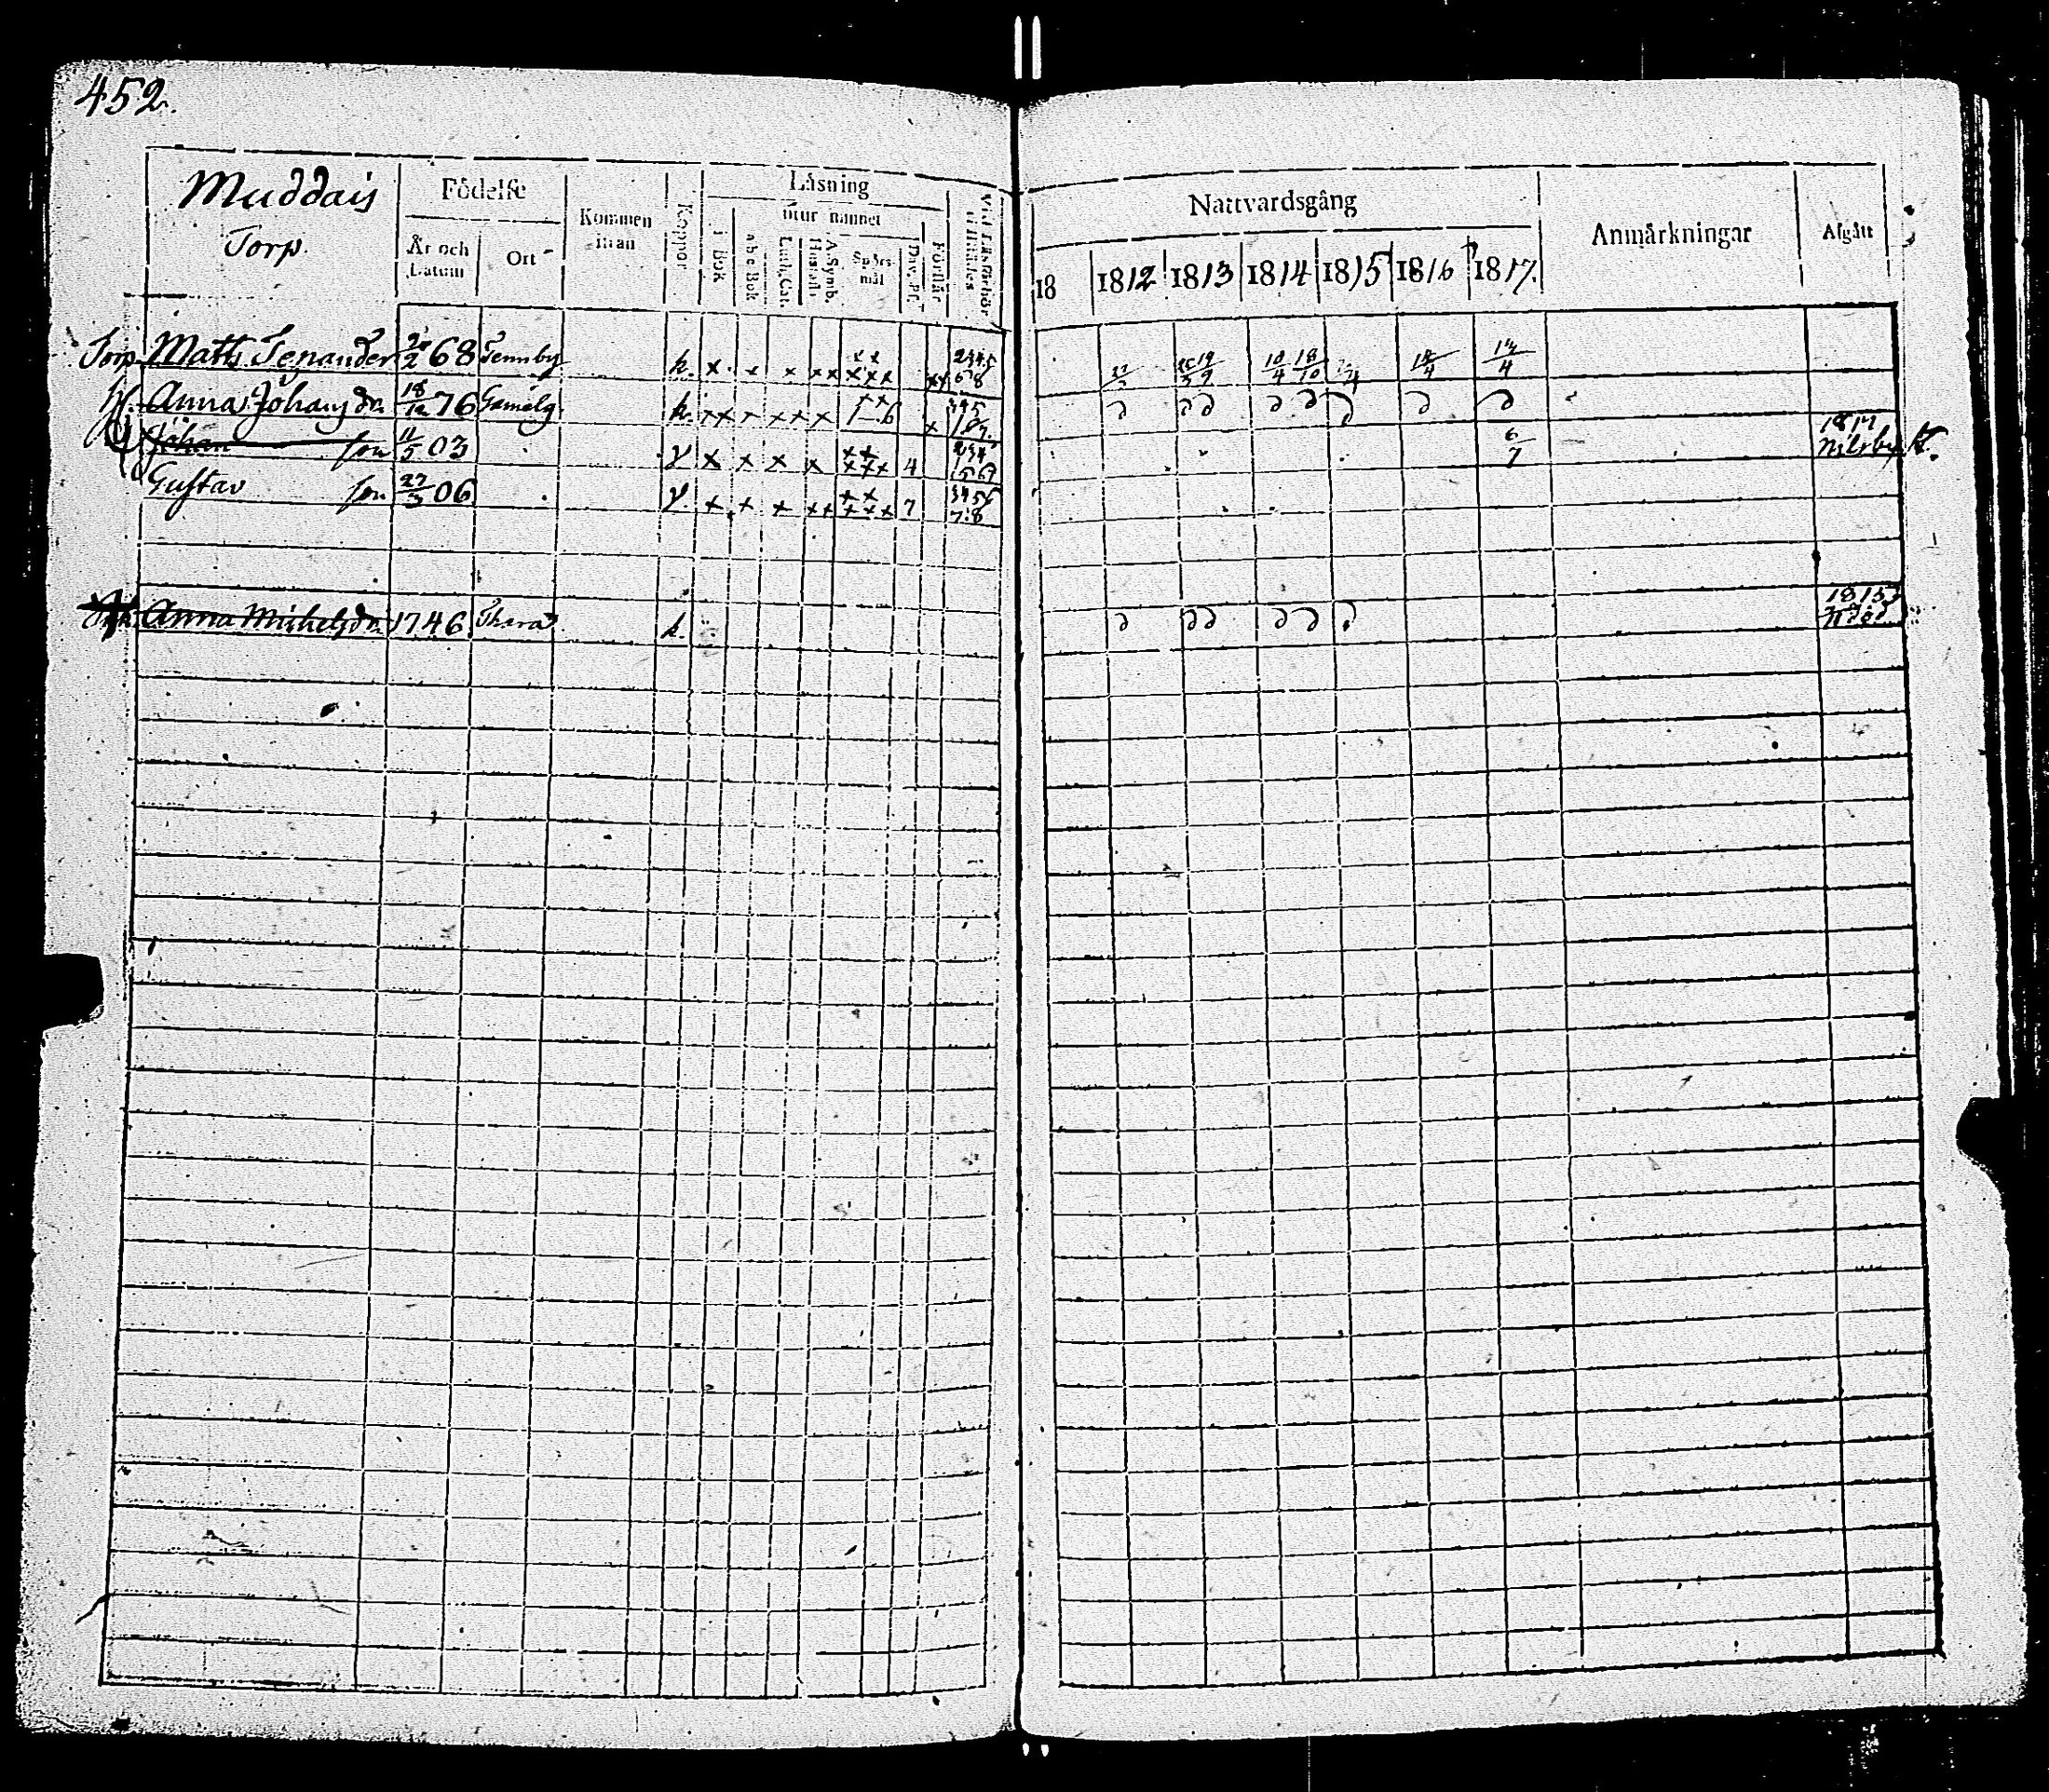 452.
Muddais
Torp.
Födelse
År och Datum
Ort
Kommen ifrån
Koppor
Läsning
i Bok
utur minnet
a b c Bok
Luth. Cat.
A. Symb. Hustafl.
Spörsmål
Dav. Ps.
Förstår
Nattvardsgång
18 1812 1813 1814 1815 1816 1817.
Anmärkningar
Afgått
Torp. Matts Tenander 68 Temby k. x x x x x x x x x x 2345 678 10/4 18/10 18/4 14/4
H. Anna Johansdr. 18/12 76 Gamelg. k. x x x x x x
Johan son 11/5 03 v x x x x x x x x x 4 234 6/7 1817 Nilsby
Gustav son 27/3 06 v. x x x x x x x x x x 7 345 78
Anna Michelsdr. 1746 k. 1815 död